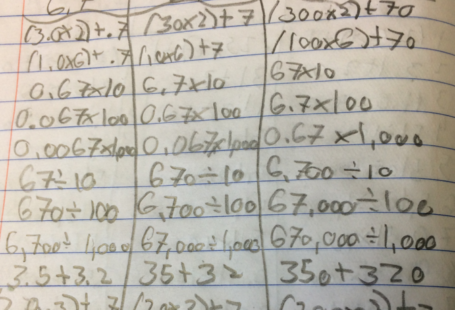 (3.0x2)+.7 (30x2)+7 (300x2)+70
(1.0x6)+.7 (10x6)+7 (100x6)+70
0.67x10 6.7x10 67x10
0.067x100 0.67x100 6.7x100
0.0067x1,000 0.067x1,000 0.67x1,000
67÷10 670÷10 6,700÷10
670÷100 6,700÷100 67,000÷100
6,700÷1,000 67,000÷1,000 670,000÷1,000
3.5+3.2 35+32 350+320